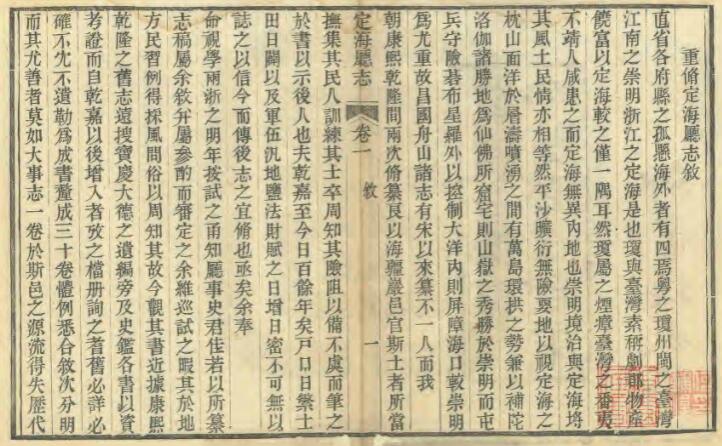 重脩定海廳志敘
直省各府縣之孤懸海外者有四焉粵之瓊州閩之臺灣
江南之崇明浙江之定海是也瓊與臺灣素稱劇郡物產
饒富以定海較之僅一隅耳然瓊屬之煙瘴臺灣之番夷
不靖人咸患之而定海無異內地也崇明境治與定海埒
其風土民情亦相等然平沙曠衍無險要地以視定海之
枕山面洋於層濤噴湧之間有萬島環拱之勢兼以補陀
洛伽諸勝地爲仙佛所窟宅則山嶽之秀勝於崇明而屯
兵守險碁布星羅外以控制大洋內則屏障海口較崇明
爲尤重故昌國舟山諸志有宋以來纂不一人而我
朝康熙乾隆間兩次脩纂良以海疆巖邑官斯土者所當
定海廳志
卷一
敘
一
撫集其民人訓練其士卒周知其險阻以備不虞而筆之
於書以示後人也夫乾嘉至今日百餘年矣戶口日繁土
田日闢以及軍伍汛地鹽法財賦之日增日密不可無以
誌之以信今而傳後志之宜脩也亟矣余奉
命視學兩浙之明年按試之甬知廳事史君隹若以所纂
志稿屬余敘弁屬參酌而審定之余維巡試之暇其於地
方民習例得採風問俗以周知其故今觀其書近據康熙
乾隆之舊志遠搜寶慶大德之遺編旁及史鑑各書以資
考證而自乾嘉以後增入者攷之檔册詢之耆舊必詳必
確不冘不遺勒爲成書釐成三十卷體例悉合敘次分明
而其尤善者莫如大事志一卷於斯邑之源流得失歷代